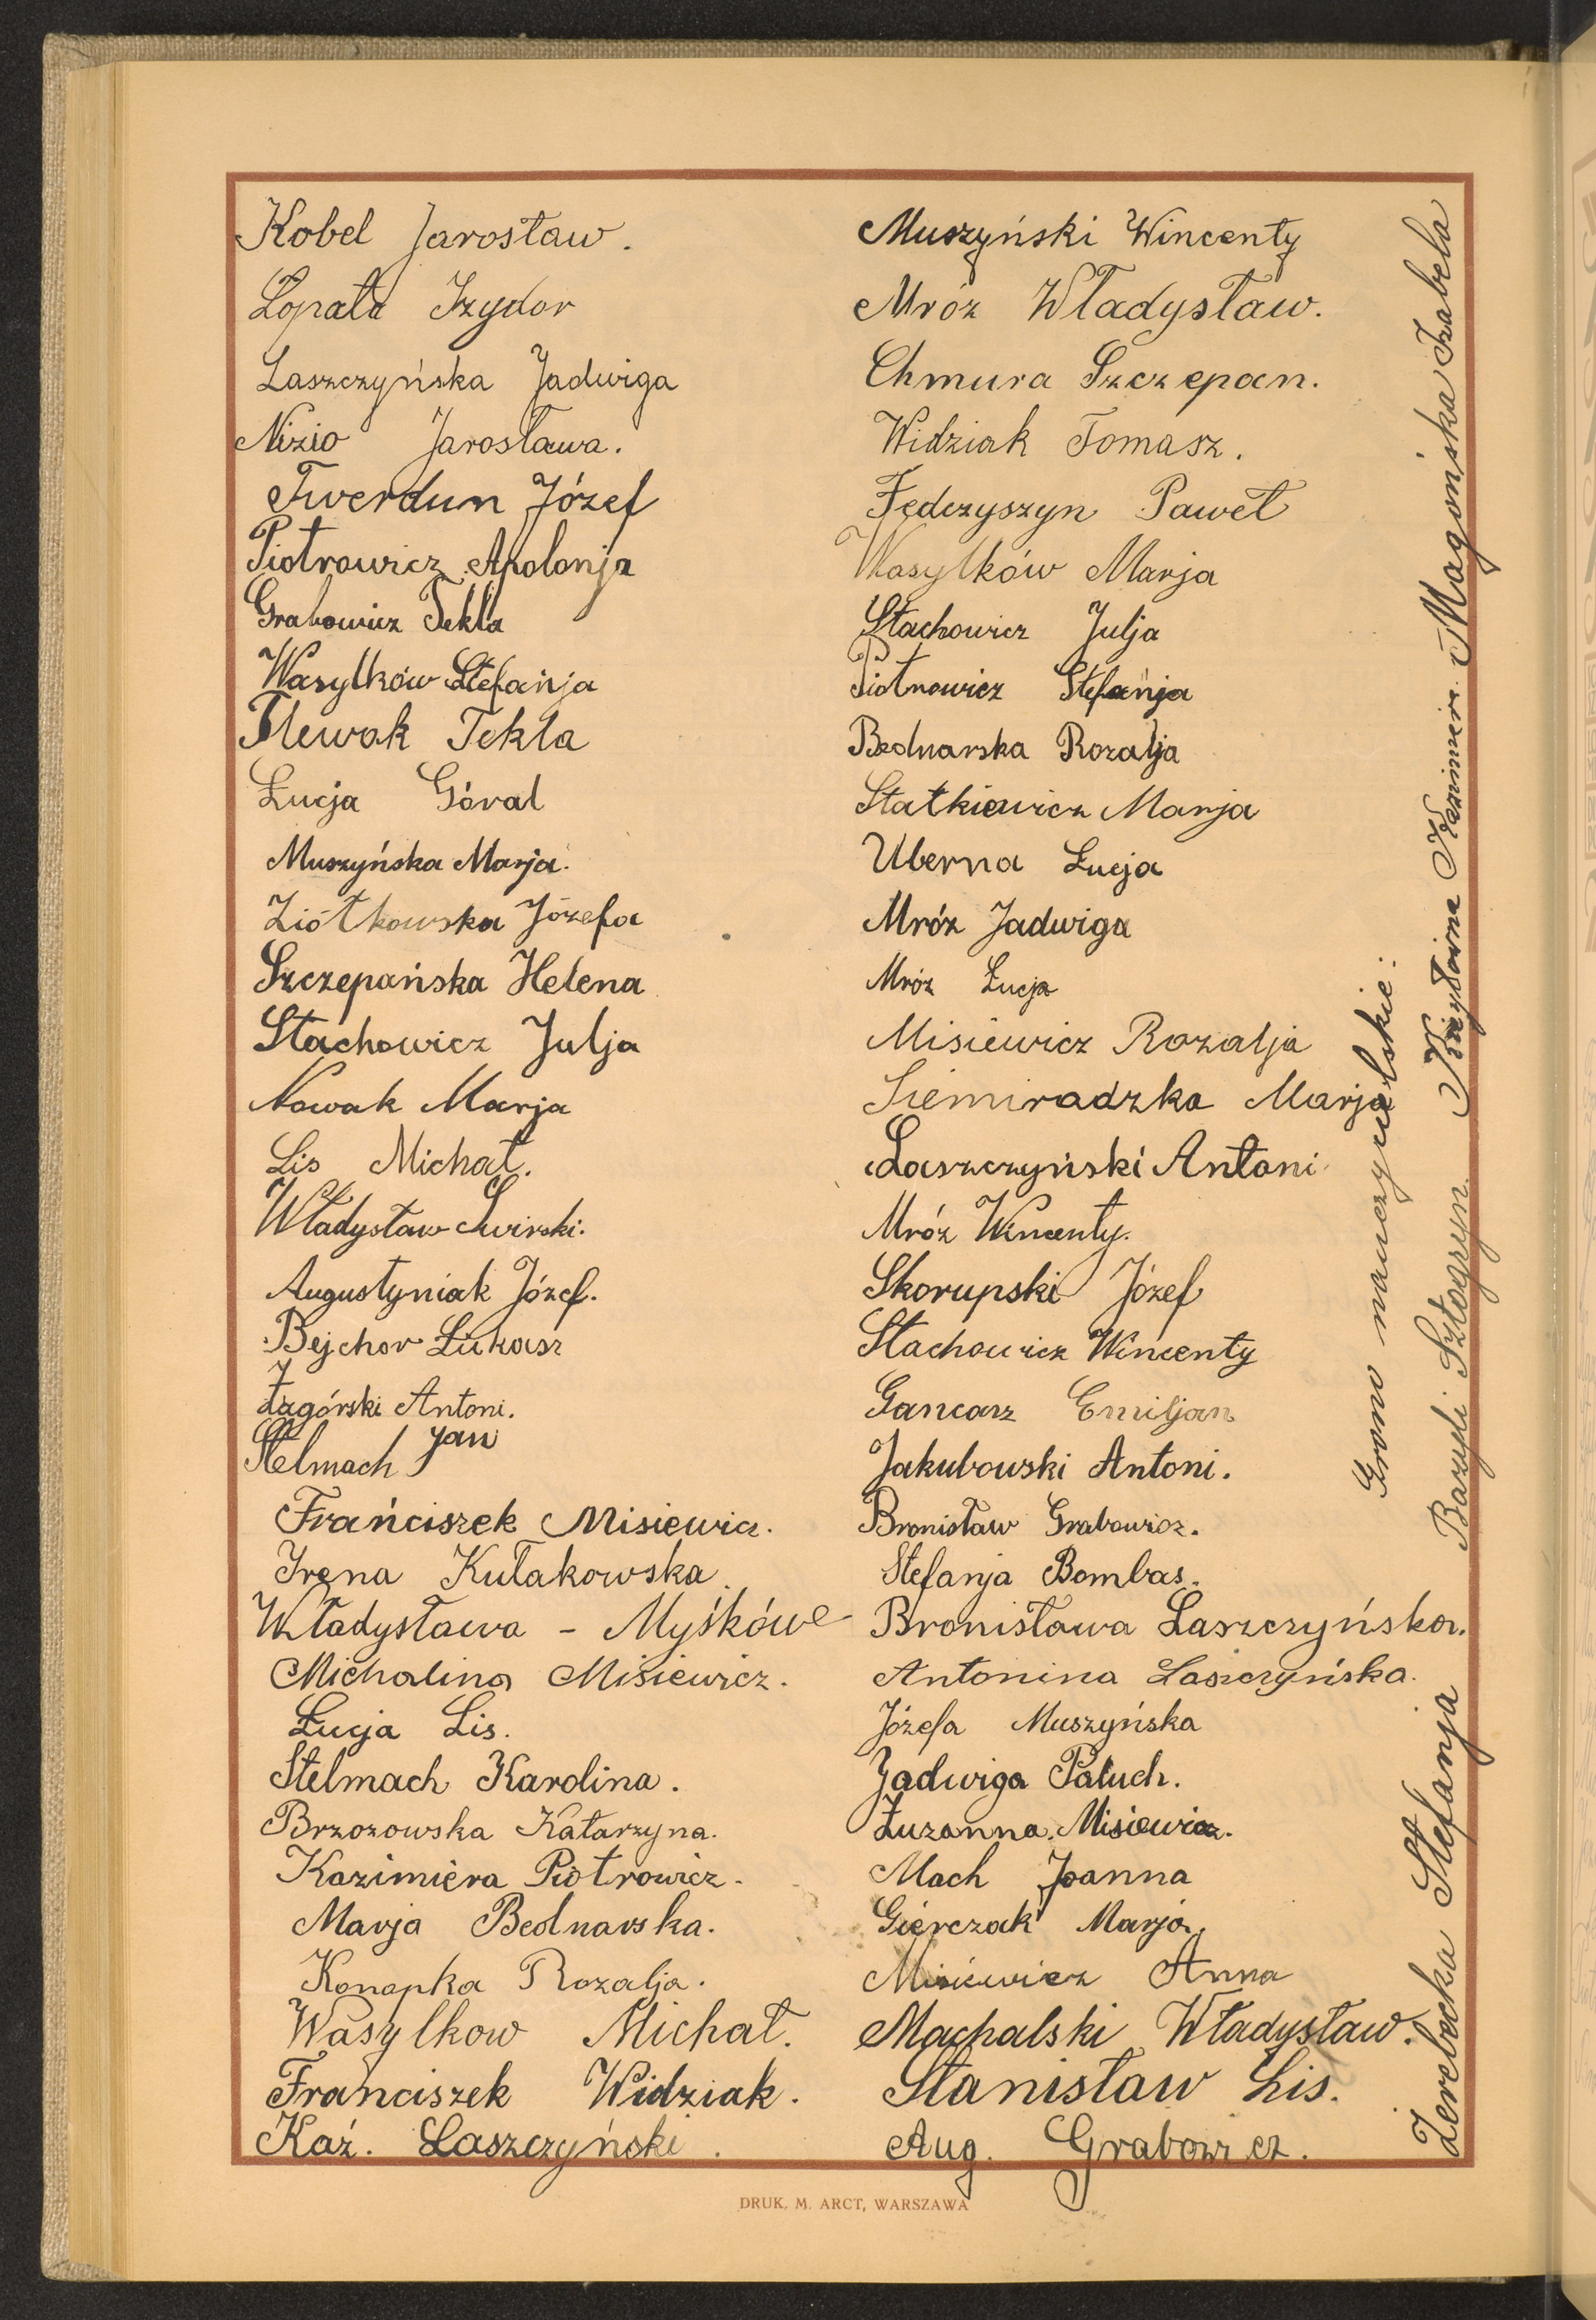 Kobel Jarosław.
Łopata Izydor
Laszczyńska Jadwiga
Nizio Jarosława.
Twerdun Józef
Piotrowicz Apolonja
Grabowicz Tekla
Wasylków Stefanja
Slewak Tekla
Łucja Góral
Muszyńska Marja.
Ziółkowska Józefa
Szczepańska Helena
Stachowicz Julja
Nowak Marja
Lis Michał.
Władysław Swirski.
Augustyniak Józef.
Bejchor Łukasz
Zagórski Antoni.
Stelmach Jan
Franciszek Misiewicz.
Irena Kułakowska.
Władysława - Myśków
Michalina Misiewicz.
Łucja Lis.
Stelmach Karolina.
Brzozowska Katarzyna.
Kazimiera Piotrowicz.
Marja Bednarska.
Konopka Rozalja.
Wasylkow Michał.
Franciszek Widziak.
Kaź. Laszczyński.
Muszyński Wincenty
Mróz Władysław.
Chmura Szczepan.
Widziak Tomasz.
Fedczyszyn Paweł
Wasylków Marja
Stachowicz Julja
Piotrowicz Stefanja
Bednarska Rozalja
Statkiewicz Marja
Uberna Łucja
Mróz Jadwiga
Mróz Łucja
Misiewicz Rozalja
Siemiradzka Marja
Laszczyński Antoni
Mróz Wincenty.
Skorupski Józef
Stachowicz Wincenty
Gancarz Emiljan
Jakubowski Antoni.
Bronisław Grabowicz.
Stefanja Bombas.
Bronisława Laszczyńska.
Antonina Laszczyńska.
Józefa Muszyńska
Jadwiga Paluch.
Zuzanna Misiewicz.
Mach Joanna
Gierczak Marja,
Misiewicz Anna
Machalski Władysław.
Stanisław Lis.
Aug. Grabowicz.
Grono nauczycielskie:
Żerebecka Stefanja Bazyli Sztogryn. Kazimiera Magońska Izabela
DRUK. M. ARCT, WARSZAWA